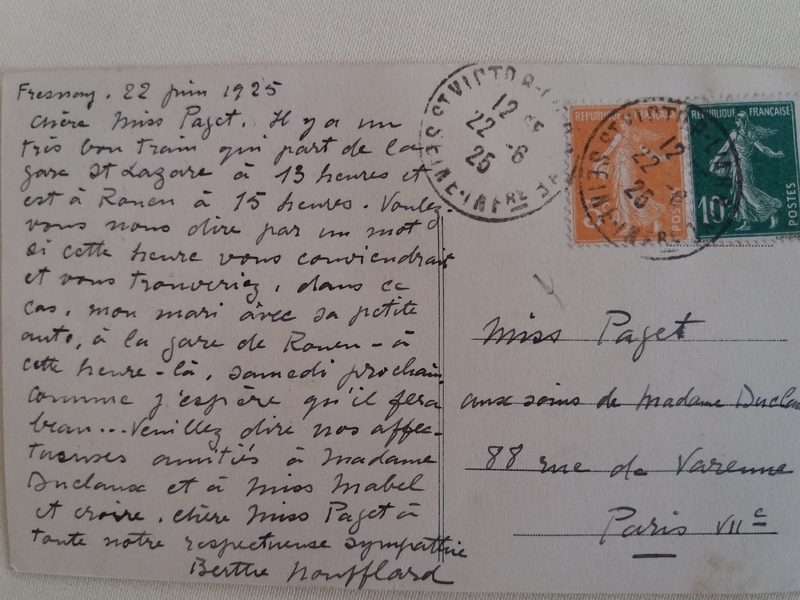 Fresnay. 22 juin 1925
Chère Miss Paget. Il y a un
très bon train qui part de la
gare St Lazare à 13 heures et
est à Rouen à 15 heures. Voulez-
vous nous dire par un mot
si cette heure vous conviendrait
et vous trouveriez, dans ce
cas, mon mari avec sa petite
auto, à la gare de Rouen - à
cette heure-là, samedi prochain,
comme j'espère qu'il fera
beau... Veuillez dire nos affec-
tueuses amitiés à Madame
Duclaux et à Miss Mabel
et croire, chère Miss Paget à
toute notre respectueuse sympathie
Berthe Noufflard
ST VICTOR-L'
12
22 -6
25
SEINE-INFRE
REPUBLIQUE FRANÇAISE
POSTES
ST VICTOR-L'
12
22 -6
25
SEINE-INFRE
REPUBLIQUE FRANÇAISE
10c
POSTES
Miss Paget
aux soins de Madame Duclau
88 rue de Varenne
Paris VIIe